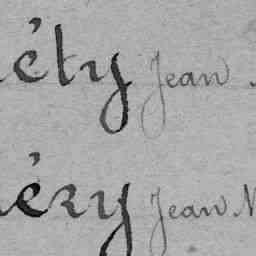 éty Jean
éry Jean